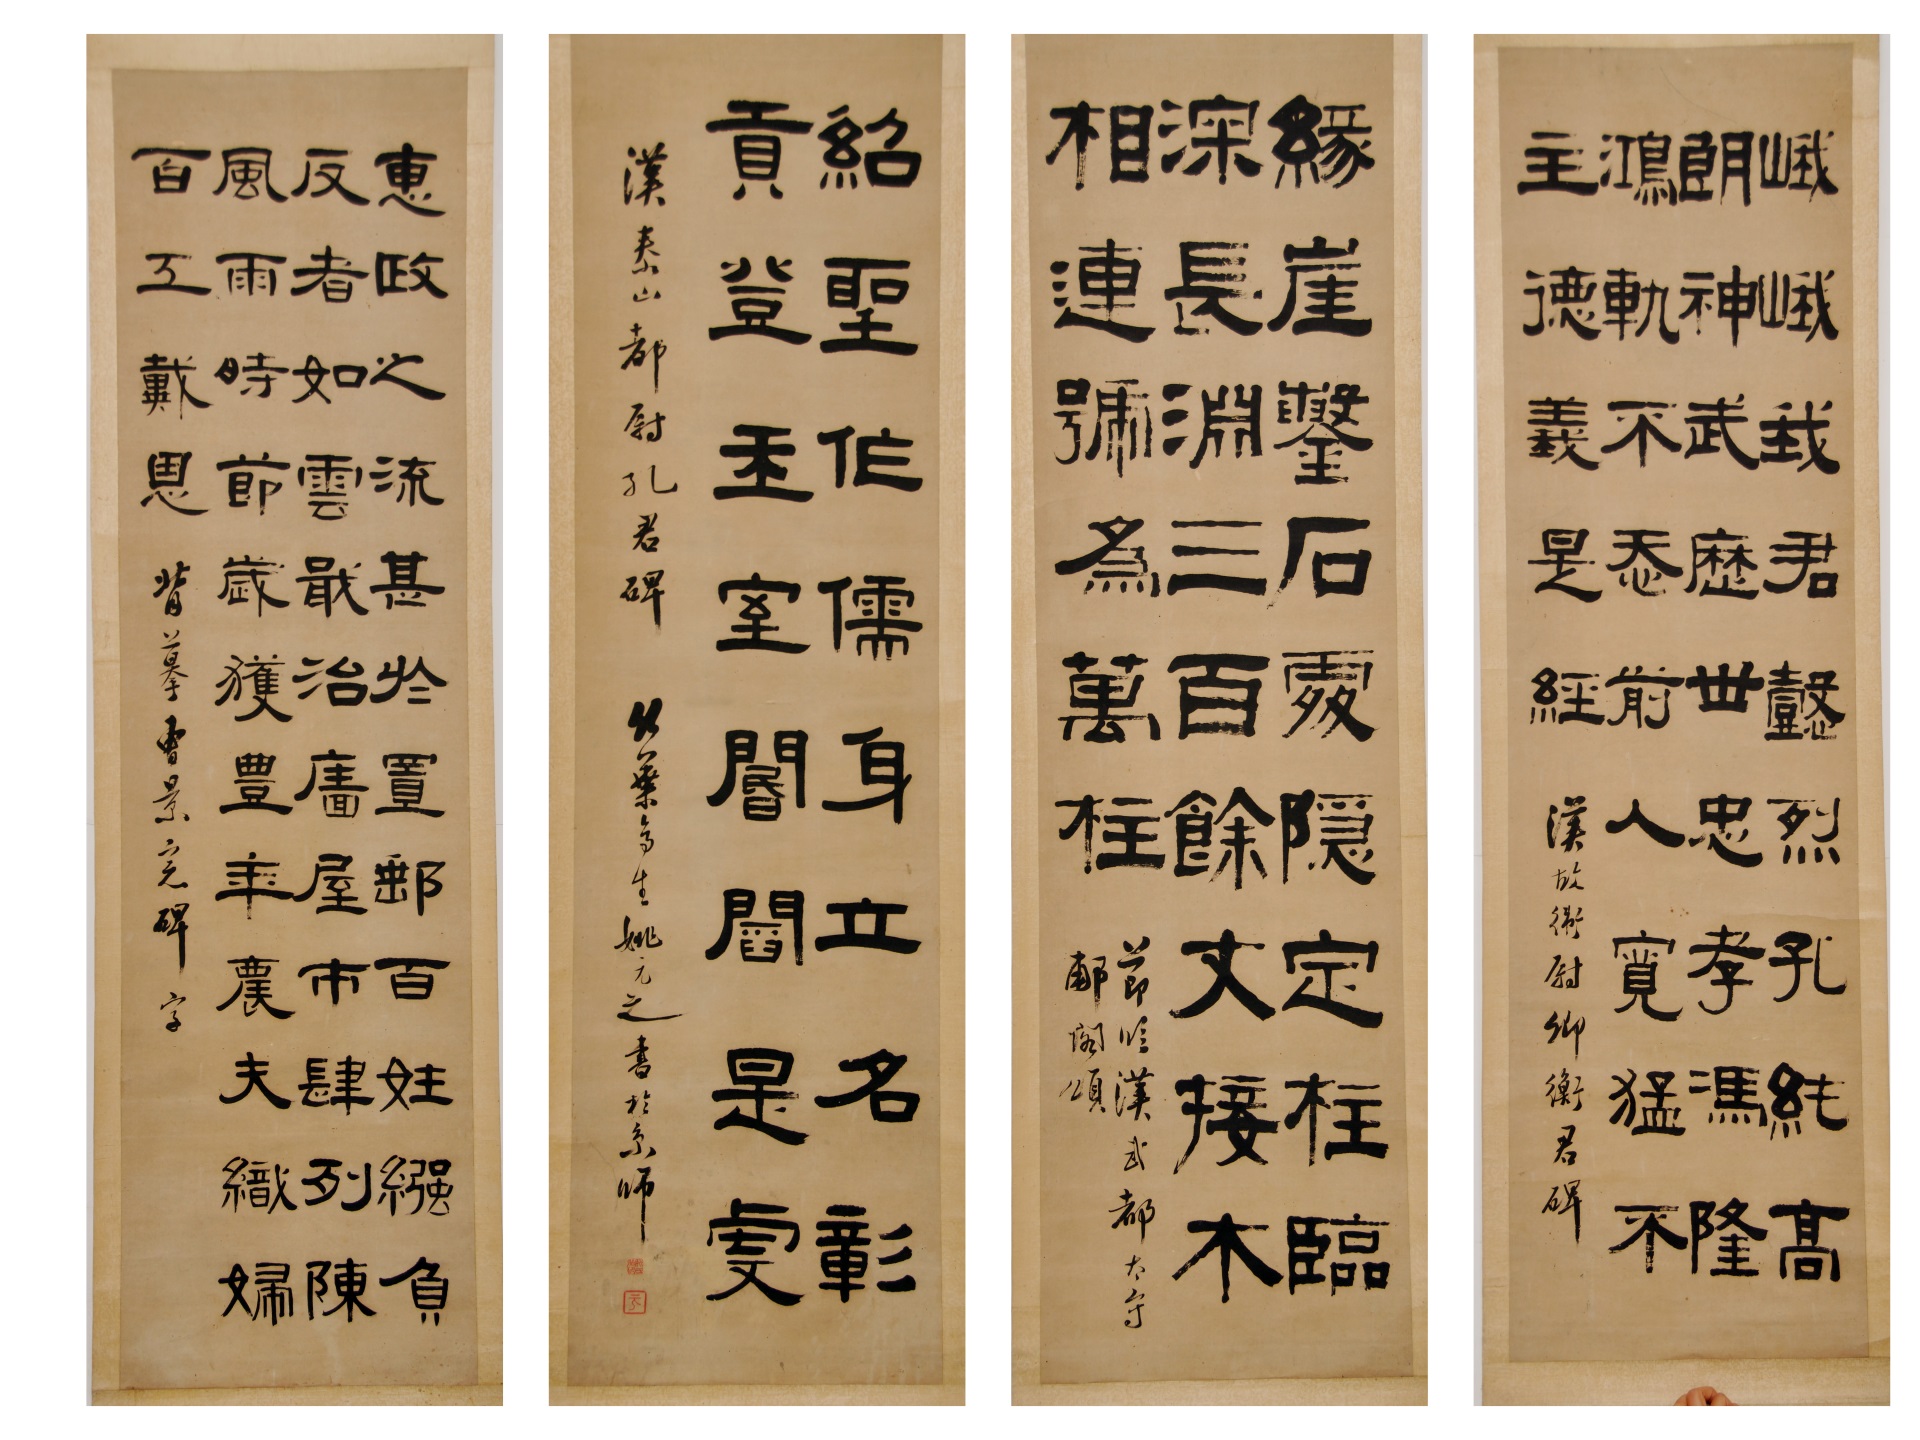 峨峨我君懿烈孔純高
朗神武歷世忠孝馮隆
鴻軌不忝前人寬猛不
主德義是經
漢故衛尉卿衡君碑
緣崖鑿石處隱定柱臨
深長淵三百餘丈接木
相連號為萬柱
節臨漢武都太守
郙閣頌
紹聖作儒身立名彰
貢登王室閽閤是虔
漢泰山都尉孔君碑 竹葉亭生姚元之書於京師
惠政之流甚於置郵百姓繈負
反者如雲戢治廧屋市肆列陳
風雨時節歲獲豐年農夫織婦
百工戴恩 背摹曹景完碑字